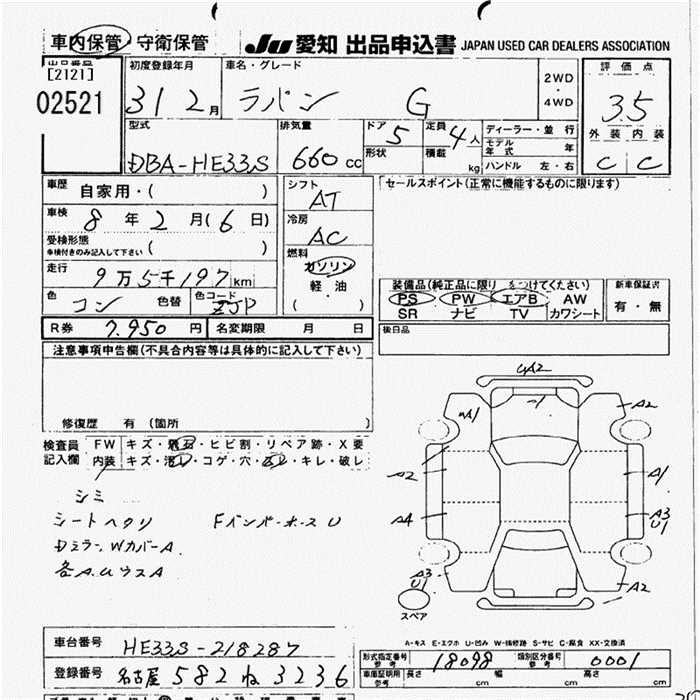 車内保管 守衛保管 JU 愛知 出品申込書 JAPAN USED CAR DEALERS ASSOCIATION
出品番号 初度登録年月 車名・グレード 評価点
[2121] 2WD
02521 31 2月 ラパン G ・ 3.5
4WD
型式 排気量 ドア 5 定員 4人 ディーラー・並行 外装 内装
モデル年式 年
DBA-HE33S 660cc 形状 積載 kg ハンドル 左・右 C C
車歴 自家用・( ) シフト AT セールスポイント(正常に機能するものに限ります)
車検 8年2月(6日) 冷房 AC
受検形態 ※検付きのみ記入して下さい ( )
走行 9万5千197km 燃料 ガソリン
軽・油
( )
装備品(純正品に限り をつけてください) 新車保証書
色 コン 色替 色コード ZJP PS PW エアB AW 有・無
SR ナビ TV カワシート
R券 7,950円 名変期限 月 日 後日品
注意事項申告欄(不具合内容等は具体的に記入して下さい)
修復歴 有(箇所 )
検査員記入欄 FW キズ・飛石・ヒビ割・リペア跡・X要
内装 キズ・汚レ・コゲ・穴・スレ・キレ・破レ
シミ
シートヘタリ FバンパーホースU
Dミラー、WカバーA
各A.UウスA
A2
A1 A2
A2 A1
A4 A3
U1
A3 A2
U1
スペア
A-キス E-エクボ U-凹み W-補修跡 S-サビ C-腐食 XX-交換済
車台番号 HE33S-218287 形式指定番号 参考 18098 類別区分番号 参考 0001
登録番号 名古屋 582 ね 3236 車庫証明用 参考 長さ cm 幅 cm 高さ cm